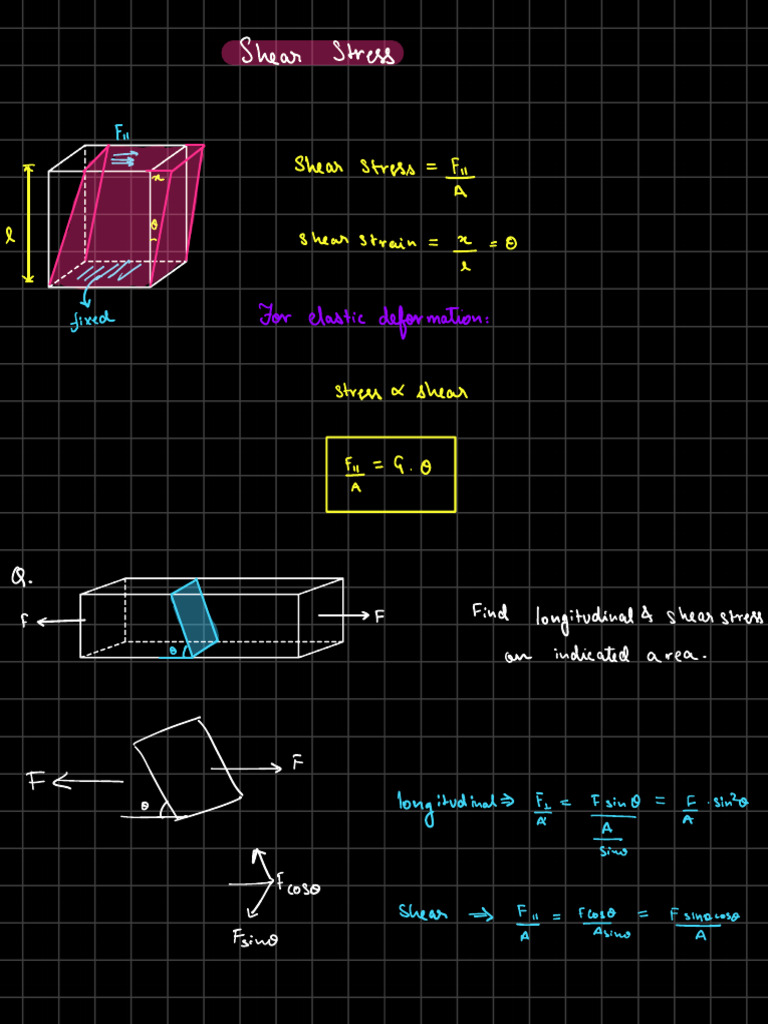 Shear Stress
F||
x
θ
l
fixed
Shear Stress = F||/A
Shear Strain = x/l = θ
For elastic deformation:
Stress ∝ Shear
F||/A = G . θ
Q.
F
F
θ
Find longitudinal & shear stress
on indicated area.
F
F
θ
longitudinal ⇒ F⊥/A' = F sinθ/(A/sinθ) = F/A . sin²θ
F cosθ
F sinθ
Shear → F||/A = F cosθ/A sinθ = F sinθ cosθ/A